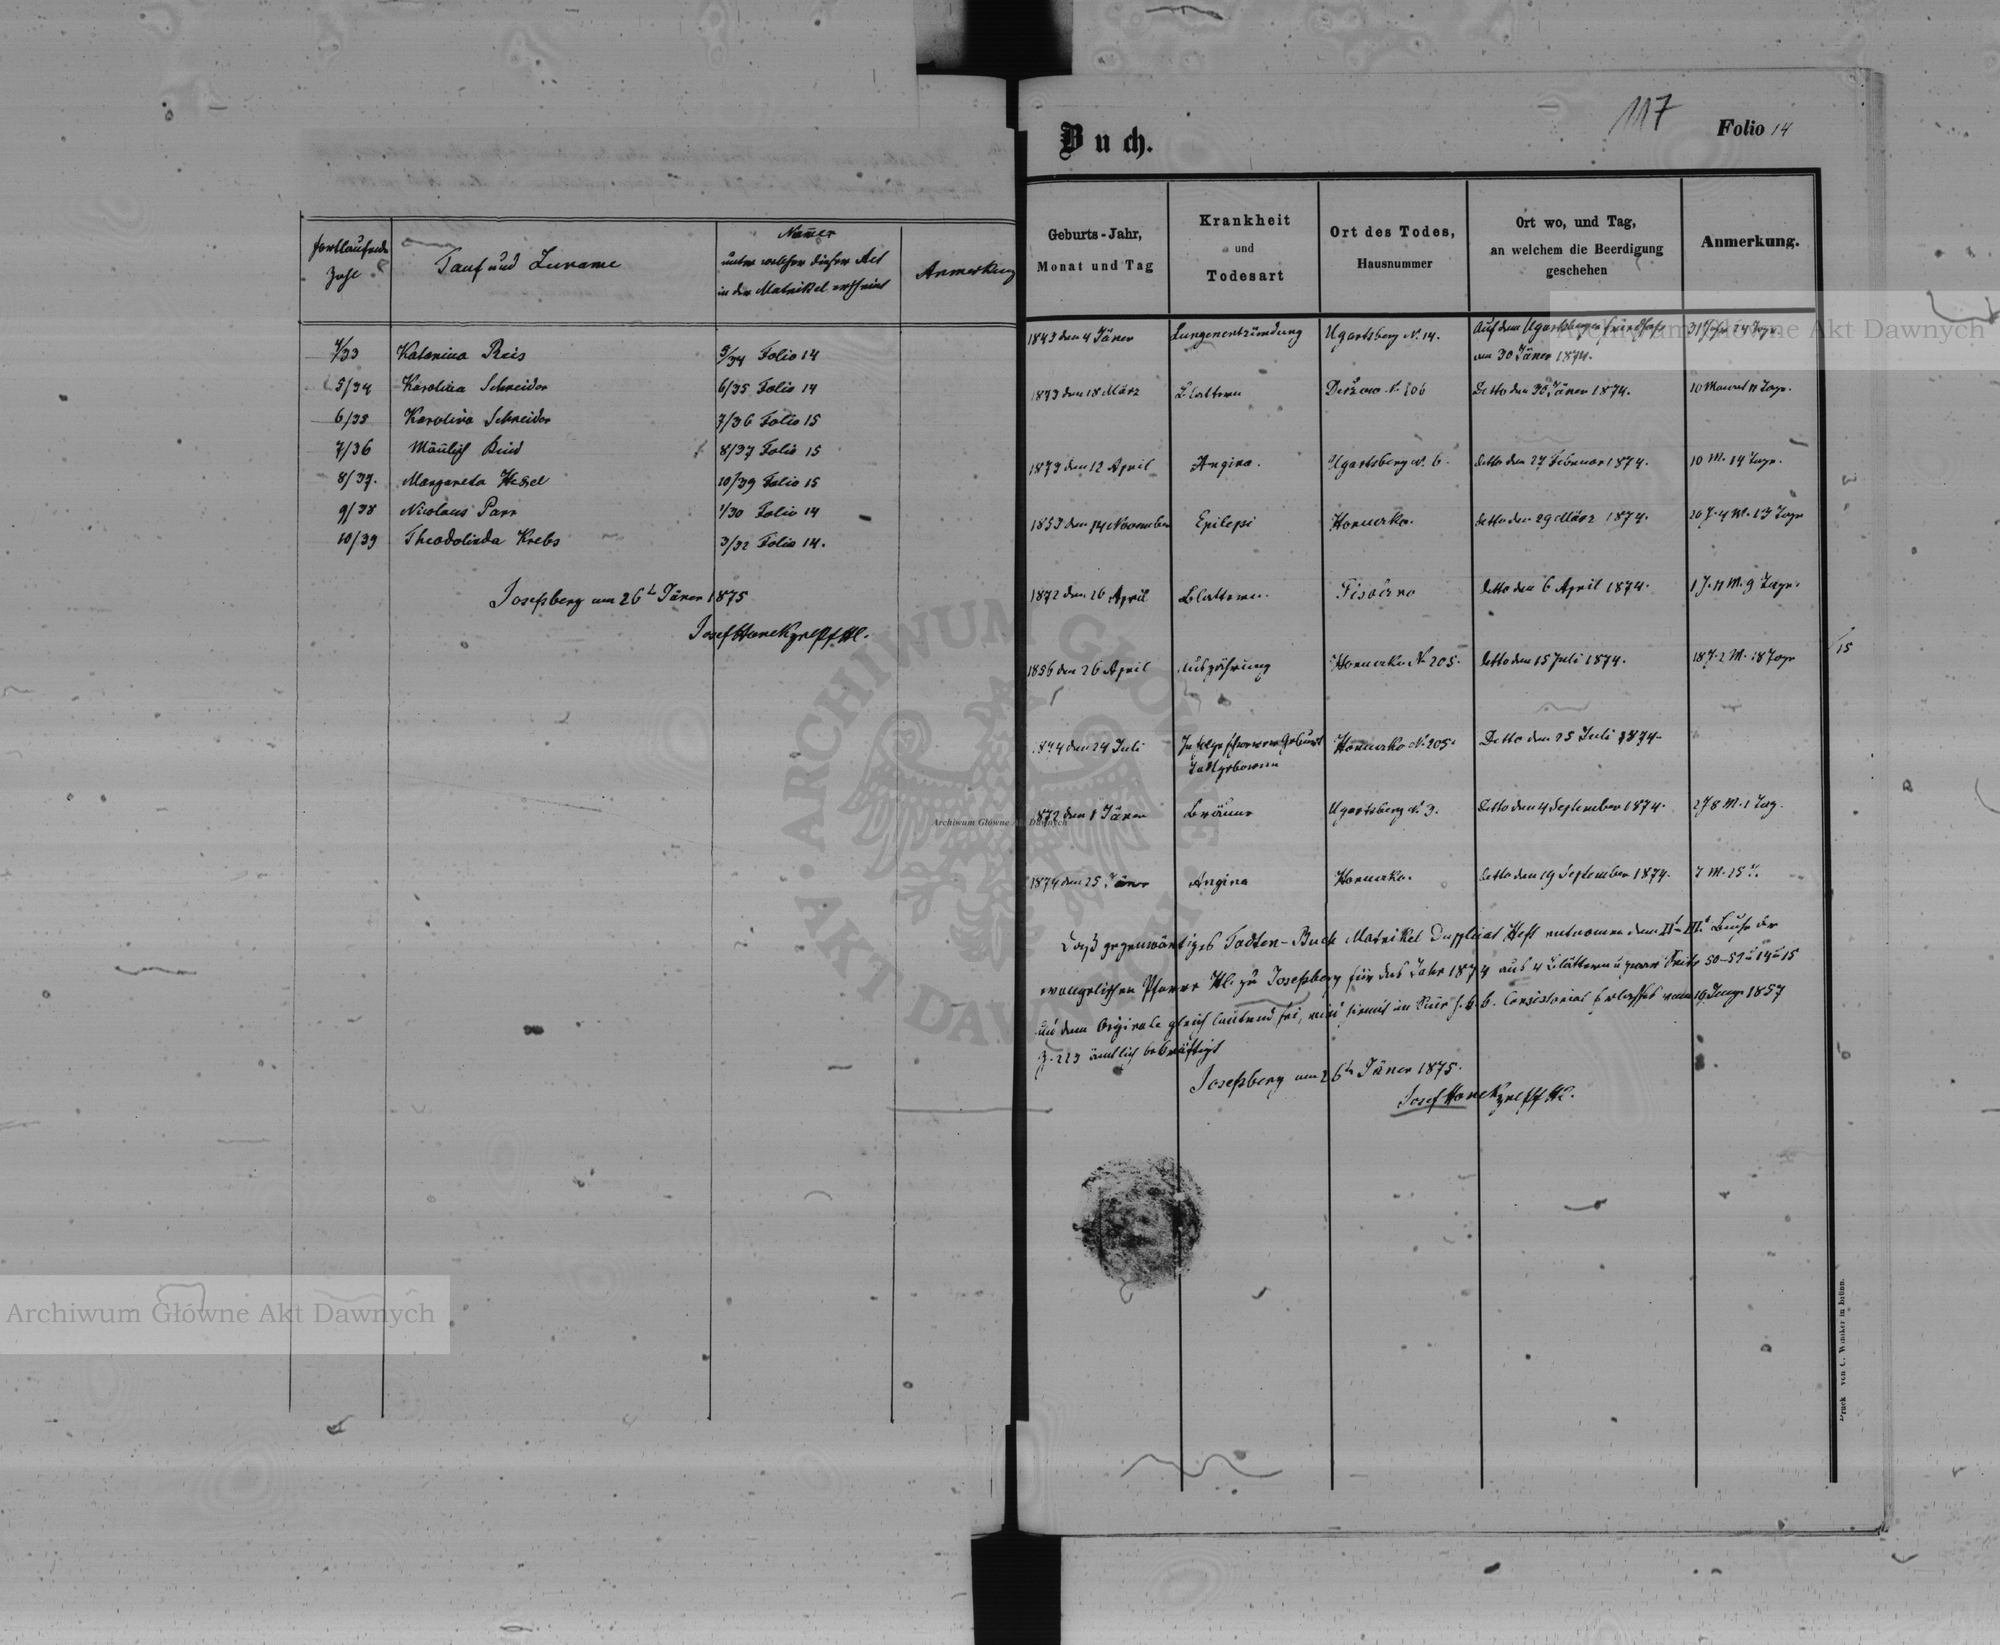 fortlaufende
Zahl
Tauf und Zuname
Numer
unter welcher dieser Act
in der Matrikel erscheint
Anmerkung
4/33 Katarina Reis 5/34 Folio 14
5/34 Karolina Schneider 6/35 Folio 14
6/35 Karolina Schneider 7/36 Folio 15
7/36 8/37 Folio 15
8/37. Margareta Hessel 10/39 Folio 15
9/38 Nicolaus Parr 1/30 Folio 14
10/39 Theodolinda Krebs 3/32 Folio 14.
Josefsberg am 26t Jäner 1875
Josef Honek
Buch.
117
Folio 14
Geburts-Jahr,
Monat und Tag
Krankheit
und
Todesart
Ort des Todes,
Hausnummer
Ort wo, und Tag,
an welchem die Beerdigung
geschehen
Anmerkung.
1843 den 4 Jäner Lungenentzündung Ugartsberg N. 14. Auf dem Ugartsberger Friedhofe 31 Jahr 24 Tage
am 30 Jäner 1874.
1873 den 18 März Blattern Detto den 30 Jäner 1874. 10 Monat 11 Tage.
1873 den 12 April Angina. Ugartsberg N. 6. detto den 27 Februar 1874. 10 M. 14 Tage.
1853 den 14 November Epilepsi Horucko. detto den 29 März 1874. 20 J. 4 M. 13 Tage
1872 den 26 April Blattern. detto den 6 April 1874. 1 J. 11 M. 9 Tage.
1856 den 26 April Auszehrung Horucko N. 205. detto den 15 Juli 1874. 18 J. 2 M. 18 Tage
15
1874 den 24 Juli In folge schwerer Geburt Horucko N. 205. Detto den 25 Juli 1874.
Todtgeboren
1872 den 1 Jäner Bräune Ugartsberg N. 3. Detto den 4 September 1874. 2 J 8 M. 1 Tag.
1874 den 25 Jäner Angina Horucko. detto den 19 September 1874. 7 M. 25 T.
Daß gegenwärtiges Todten-Buch Matrikel Duplicat Heft entnomen dem Buche der
evangelischen Pfarre zu Josefsberg für das Jahr 1874 aus 4 Blättern u zwar Seite 50-52 u 14 u 15
und dem Originale gleich lautend sei, wird hiemit im Sinne h. k. k. Consistorial Erlasses vom 1857
Z. 223 ämtlich bekräftigt
Josefsberg am 26t Jäner 1875.
Josef Honek
Druck von C. Winiker in Brünn.
Archiwum Główne Akt Dawnych
Archiwum Główne Akt Dawnych
Archiwum Główne Akt Dawnych
ARCHIWUM GŁÓWNE AKT DAWNYCH